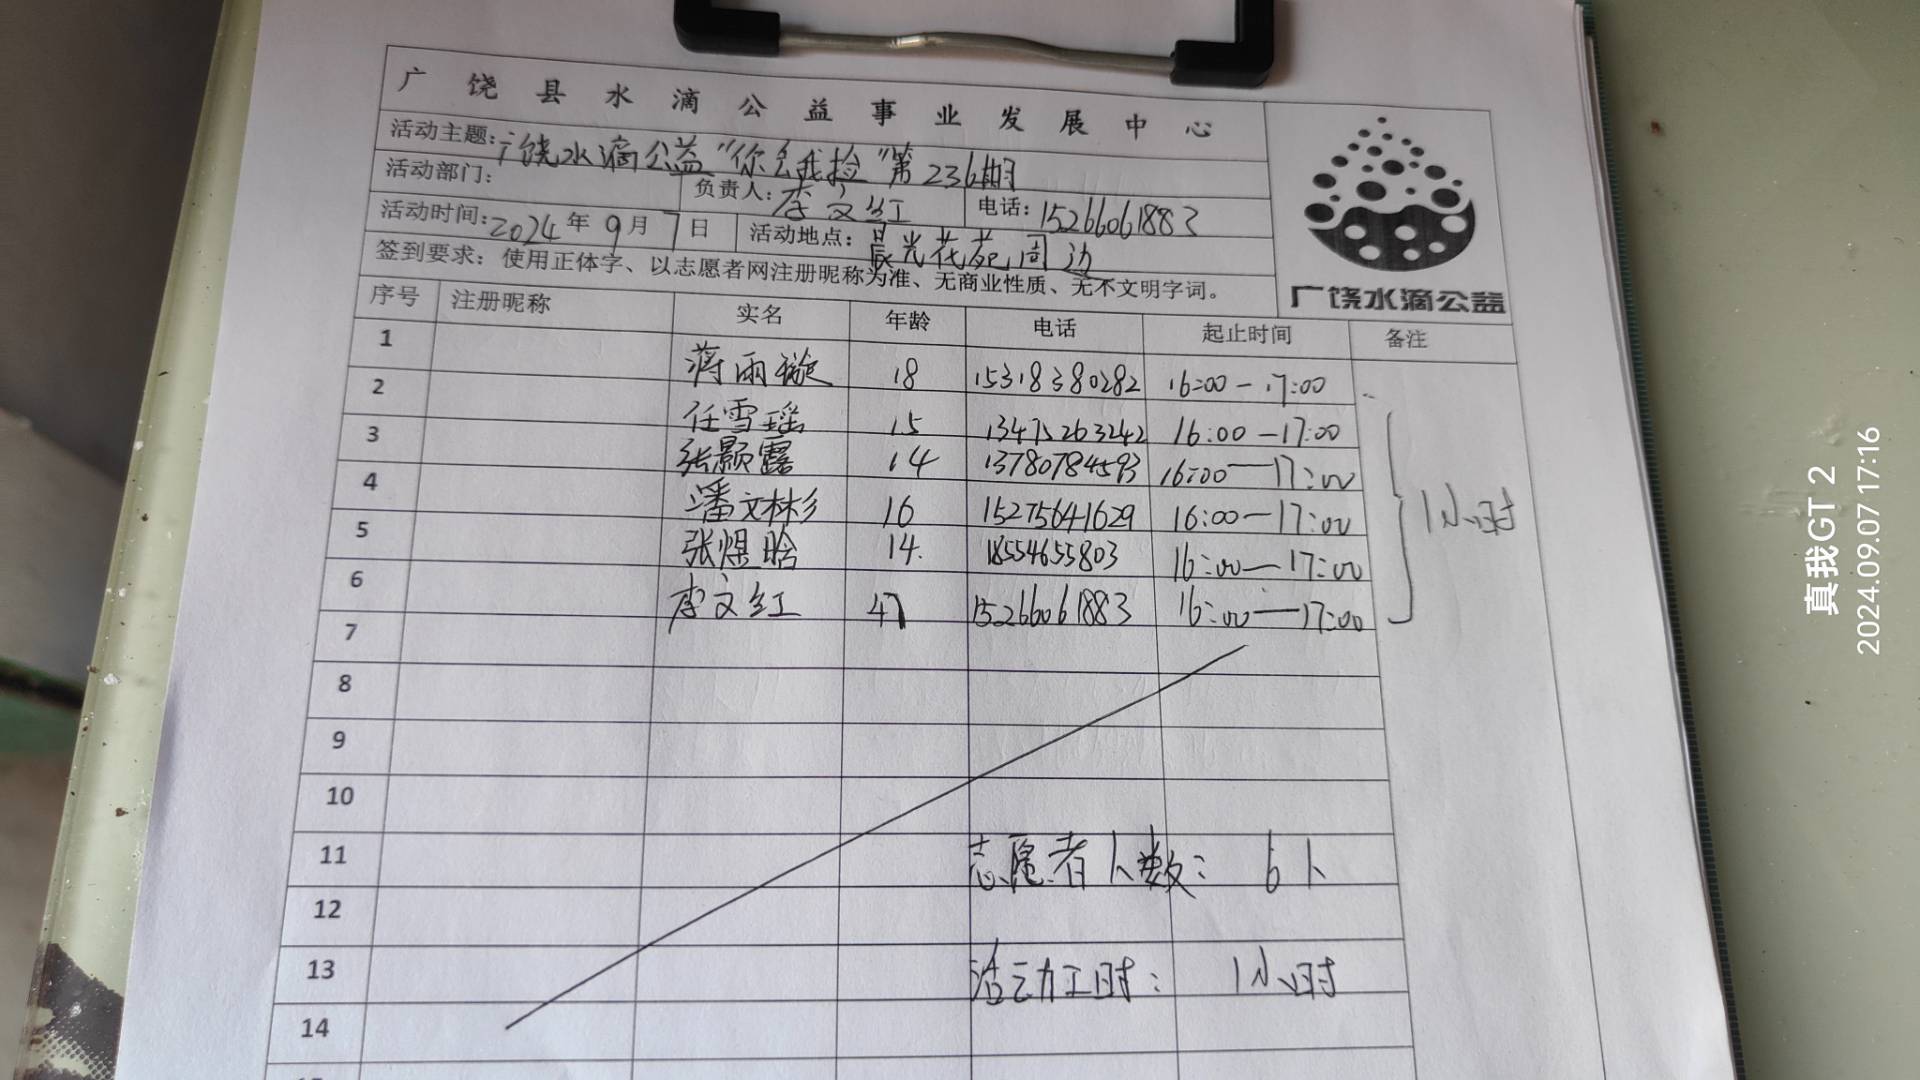 广饶县水滴公益事业发展中心
活动主题:广饶水滴公益"你丢我捡"第236期
活动部门: 负责人:李文红 电话:15266061883
活动时间:2024年9月7日 活动地点:晨光花苑周边
签到要求:使用正体字、以志愿者网注册昵称为准、无商业性质、无不文明字词。
广饶水滴公益
序号 注册昵称 实名 年龄 电话 起止时间 备注
1 蒋雨璇 18 15318380282 16:00-17:00
2 任雪瑶 15 13475263242 16:00-17:00
3 张颢露 14 13780784593 16:00-17:00
4 潘文彬 16 15275641629 16:00-17:00
5 张煜晗 14. 18554655803 16:00-17:00
6 李文红 47 15266061883 16:00-17:00
1小时
7
8
9
10
11 志愿者人数: 6人
12
13 活动工时: 1小时
14
真我GT 2
2024.09.07 17:16